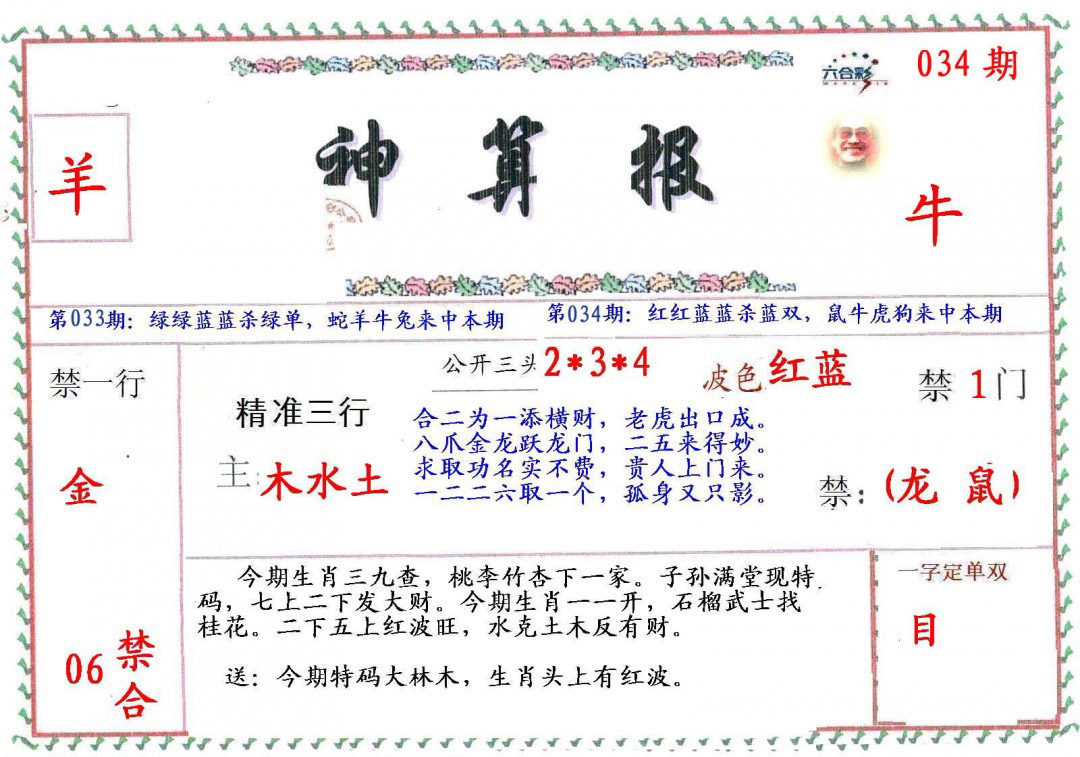 六合彩
034 期
神算报
羊
牛
第033期：绿绿蓝蓝杀绿单，蛇羊牛兔来中本期
第034期：红红蓝蓝杀蓝双，鼠牛虎狗来中本期
禁一行
金
06
禁合
精准三行
主:木水土
公开三头2*3*4
波色红蓝
合二为一添横财，老虎出口成。
八爪金龙跃龙门，二五来得妙。
求取功名实不费，贵人上门来。
一二二六取一个，孤身又只影。
禁1门
禁：(龙 鼠)
今期生肖三九查，桃李竹杏下一家。子孙满堂现特
码，七上二下发大财。今期生肖一一开，石榴武士找
桂花。二下五上红波旺，水克土木反有财。
送：今期特码大林木，生肖头上有红波。
一字定单双
目